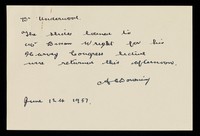 Dr Underwood.
The slides loaned to
Mr Dixon Wright for his
Library Congress lecture
were returned this afternoon.
June 12th 1957.